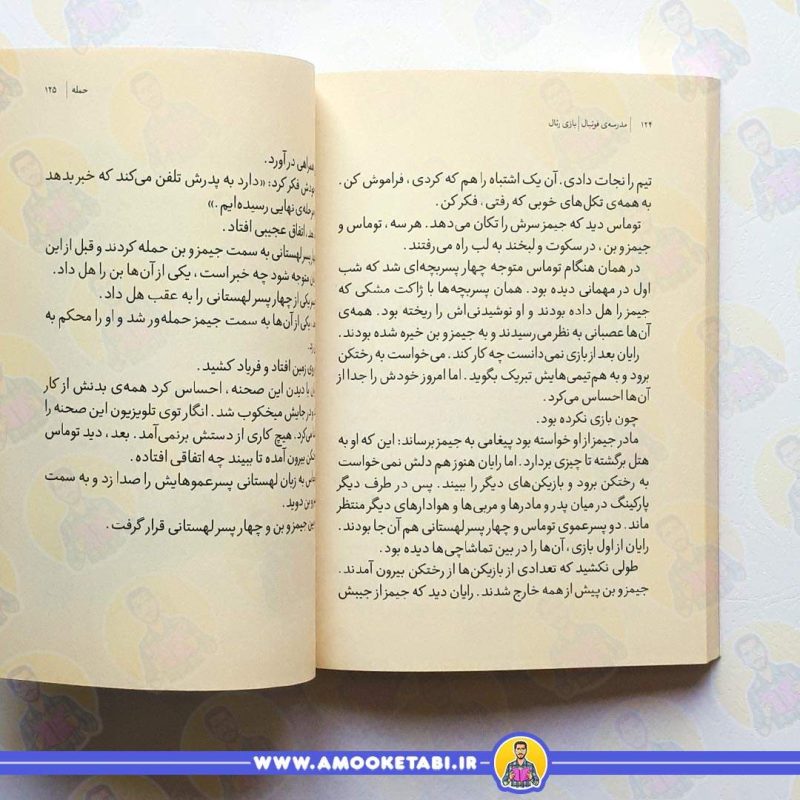 ۱۲۴ | مدرسه‌ی فوتبال | بازی رئال
تیم را نجات دادی. آن یک اشتباه را هم که کردی، فراموش کن.
به همه‌ی تکل‌های خوبی که رفتی، فکر کن.
توماس دید که جیمز سرش را تکان می‌دهد. هر سه، توماس و
جیمز و بن، در سکوت و لبخند به لب راه می‌رفتند.
در همان هنگام توماس متوجه چهار پسربچه‌ای شد که شب
اول در مهمانی دیده بود. همان پسربچه‌ها با ژاکت مشکی که
جیمز را هل داده بودند و او نوشیدنی‌اش را ریخته بود. همه‌ی
آن‌ها عصبانی به نظر می‌رسیدند و به جیمز و بن خیره شده بودند.
رایان بعد از بازی نمی‌دانست چه کار کند. می‌خواست به رختکن
برود و به هم‌تیمی‌هایش تبریک بگوید. اما امروز خودش را جدا از
آن‌ها احساس می‌کرد.
چون بازی نکرده بود.
مادر جیمز از او خواسته بود پیغامی به جیمز برساند: این که او به
هتل برگشته تا چیزی بردارد. اما رایان هنوز هم دلش نمی‌خواست
به رختکن برود و بازیکن‌های دیگر را ببیند. پس در طرف دیگر
پارکینگ در میان پدر و مادرها و مربی‌ها و هوادارهای دیگر منتظر
ماند. دو پسرعموی توماس و چهار پسر لهستانی هم آن‌جا بودند.
رایان از اول بازی، آن‌ها را در بین تماشاچی‌ها دیده بود.
طولی نکشید که تعدادی از بازیکن‌ها از رختکن بیرون آمدند.
جیمز و بن پیش از همه خارج شدند. رایان دید که جیمز از جیبش
حمله | ۱۲۵
همراهی درآورد.
خودش فکر کرد: «دارد به پدرش تلفن می‌کند که خبر بدهد
مرحله‌ی نهایی رسیده‌ایم.»
اتفاق عجیبی افتاد.
پسر لهستانی به سمت جیمز و بن حمله کردند و قبل از این
متوجه شود چه خبر است، یکی از آن‌ها بن را هل داد.
یکی از چهار پسر لهستانی را به عقب هل داد.
یکی از آن‌ها به سمت جیمز حمله‌ور شد و او را محکم به
روی زمین افتاد و فریاد کشید.
با دیدن این صحنه، احساس کرد همه‌ی بدنش از کار
در جایش میخکوب شد. انگار توی تلویزیون این صحنه را
می‌کرد. هیچ کاری از دستش برنمی‌آمد. بعد، دید توماس
بیرون آمده تا ببیند چه اتفاقی افتاده.
به زبان لهستانی پسرعموهایش را صدا زد و به سمت
بن دوید.
بین جیمز و بن و چهار پسر لهستانی قرار گرفت.
WWW.AMOOKETABI.IR